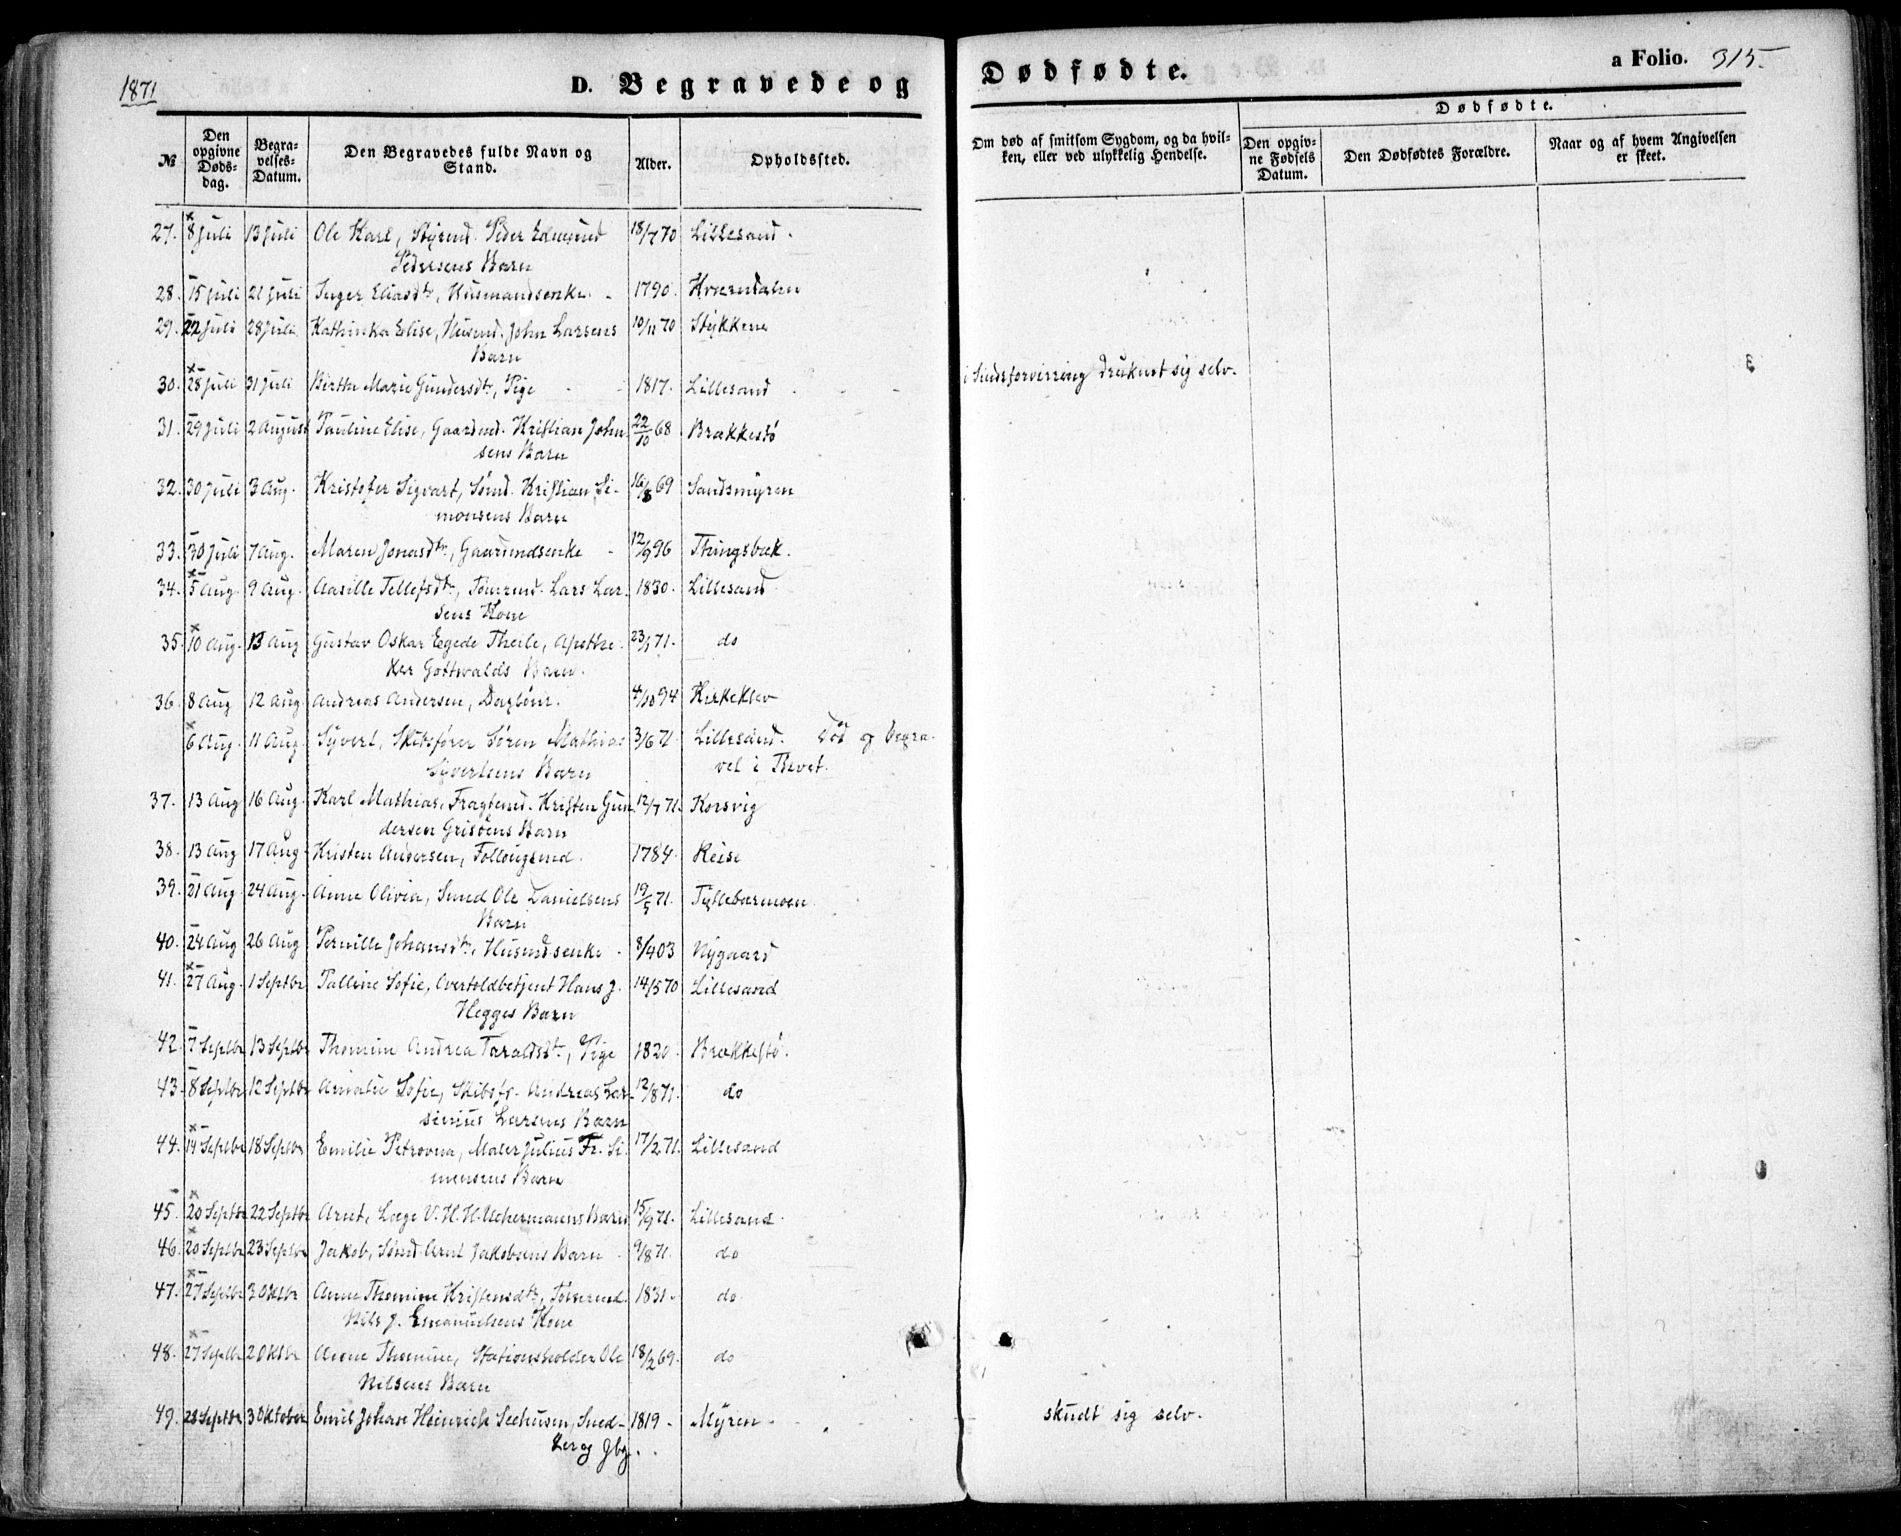 1871
D. Begravede og Dødfødte.
a Folio. 315.
№
Den opgivne Døds-dag.
Begra-velses-Datum.
Den Begravedes fulde Navn og Stand.
Alder.
Opholdssted.
Om død af smitsom Sygdom, og da hvil-ken, eller ved ulykkelig Hendelse.
Dødfødte.
Den opgiv-ne Fødsels Datum.
Den Dødfødtes Forældre.
Naar og af hvem Angivelsen er skeet.
27. 8 juli 13 juli Ole Karl, Styrmd. Peder Edmund 18/7 70 Lillesand.
Pedersens Barn
28. 15 juli 21 juli Inger Eliasdtr, Husmandsenke. 1790. Kværndalen
29. 22 juli 28 juli Kathinka Elise, Husmd. John Larsens 10/11 70 Stykkene
Barn
30. 28 juli 31 juli Birthe Marie Gundersdtr, Pige 1817. Lillesand i Sindsforvirring druknet sig selv.
31. 29 juli 2 August Pauline Elise, Gaardmd. Kristian John- 22/10 68. Brækkestø
sens Barn
32. 30 juli 3 Aug. Kristofer Sigvart, Sømd. Kristian Si- 16/8 69 Sandsmyren
monsens Barn
33. 30 juli 7 Aug. Maren Jonasdtr, Gaardmdsenke 12/9 96 Thingsbæk.
34. 5 Aug. 9 Aug. Aasille Tellefsdtr, Tømrmd. Lars Lar- 1830. Lillesand
sens Kone
35. 10 Aug. 13 Aug Gustav Oskar Egede Theile, Apothe- 23/1 71. do
ker Gottwalds Barn.
36. 8 Aug 12 Aug. Andreas Andersen, Dagløn. 4/10 94 Kirkeklev
6 Aug. 11 Aug. Syvert, Skibsfører Søren Mathias 3/6 71. Lillesand. Død og begra-
Syvertsens Barn vet i Tvet.
37. 13 Aug 16 Aug. Karl Mathias, Fragtemd. Kristen Gun- 12/7 71. Korsvig
dersen Grisøens Barn
38. 13 Aug 17 Aug. Kristen Andersen, Follougsmd. 1784. Reise
39. 21 Aug 24 Aug. Anne Olivia, Smed Ole Danielsens 19/5 71. Tyttebærmoen
Barn
40. 24 Aug 26 Aug Pernille Johansdtr, Husmdsenke 8/4 03 Nygaard
41. 27 Aug. 1 Septbr Palline Sofie, Overtoldbetjent Hans J. 14/5 70 Lillesand
Hegges Barn
42. 7 Septbr 13 Septbr Thomine Andrea Taraldsdtr, Pige 1820. Brækkestø.
43. 8 Septbr 12 Septbr Amalie Sofie, Skibsfr. Andreas Lar- 12/8 71. do
sinius Larsens Barn
44. 14 Septbr 18 Septbr Emilie Petrovna, Maler Julius Fr. Si- 17/2 71. Lillesand
mensens Barn
45. 20 Septbr 22 Septbr Arnt, Læge V. H. H. Uchermanns Barn 15/9 71. Lillesand.
46. 20 Septbr 23 Septbr Jakob, Sømd Arnt Jakobsens Barn 9/8 71. do
47. 27 Septbr 3 Oktbr Anne Thomine Kristensdtr, Tømrmd. 1831. do.
Nils J. Emanuelsens Kone
48. 27 Septbr 2 Oktbr Anne Thomine, Stationsholder Ole 18/2 69. do
Nilsens Barn
49. 28 Septbr 3 Oktober Emil Johan Heinrich Seehusen, Sned- 1819. Myren skudt sig selv.
ker og Gbg.